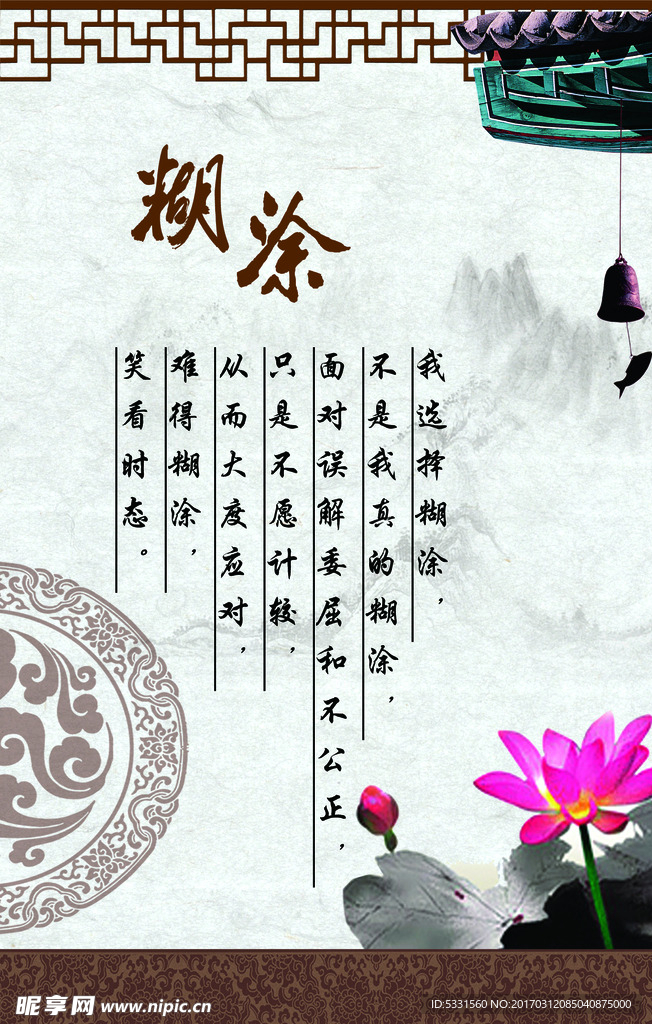 糊涂
我选择糊涂，
不是我真的糊涂，
面对误解委屈和不公正，
只是不愿计较，
从而大度应对，
难得糊涂，
笑看时态。
昵享网 www.nipic.cn
ID:5331560 NO:20170312085040875000